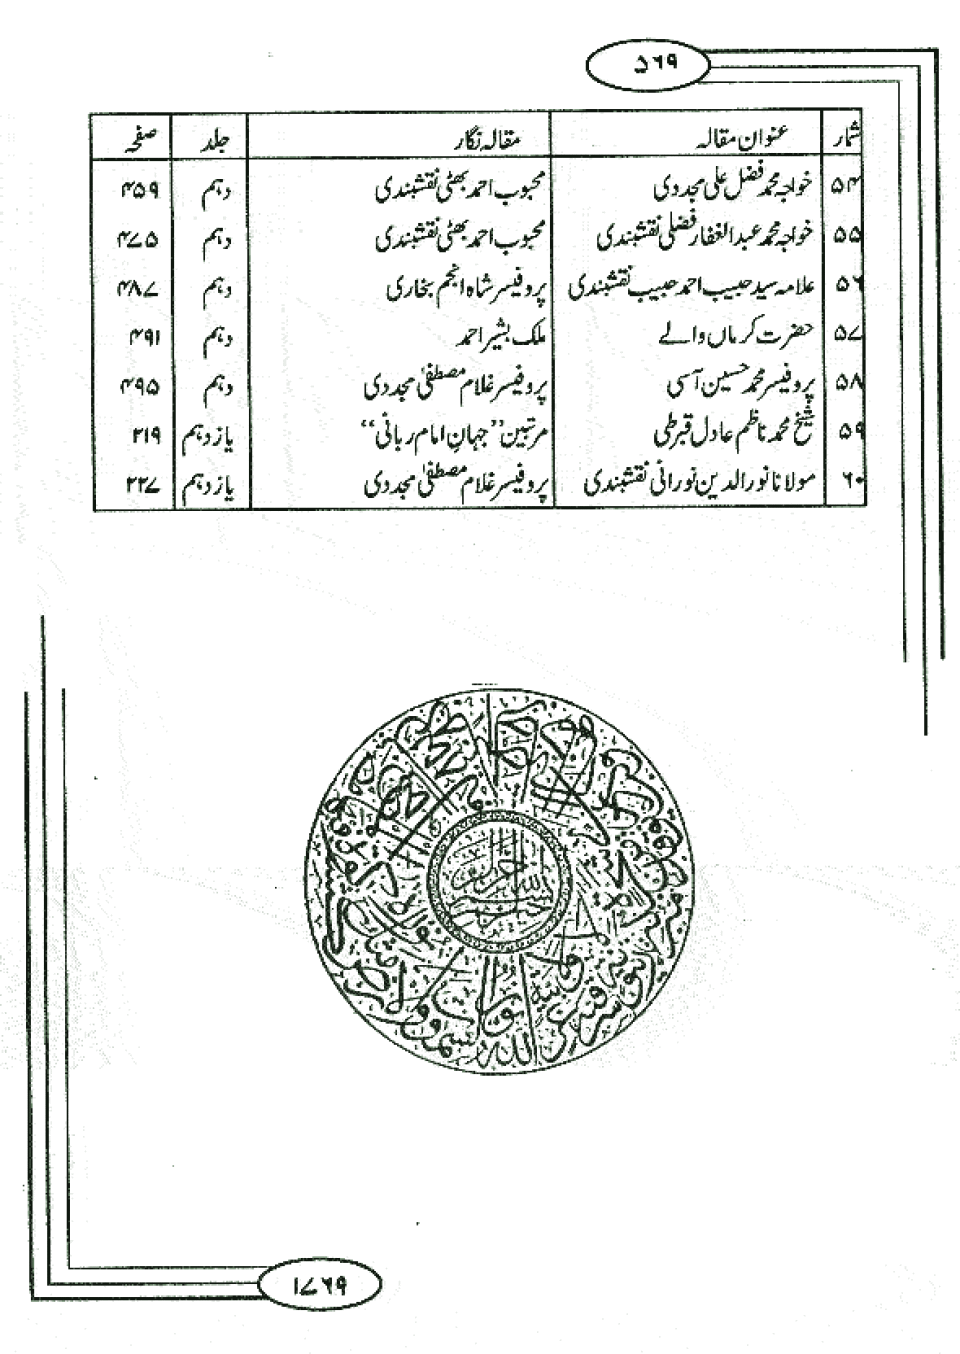 ۵۶۹
شمار عنوان مقالہ مقالہ نگار جلد صفحہ
۵۴ خواجہ محمد فضل علی مجددی محبوب احمد بھٹی نقشبندی دہم ۴۵۹
۵۵ خواجہ محمد عبدالغفار فضلی نقشبندی محبوب احمد بھٹی نقشبندی دہم ۴۷۵
۵۶ علامہ سید حبیب احمد حبیب نقشبندی پروفیسر شاہ انجم بخاری دہم ۴۸۷
۵۷ حضرت کرماں والے ملک بشیر احمد دہم ۴۹۱
۵۸ پروفیسر محمد حسین آسی پروفیسر غلام مصطفیٰ مجددی دہم ۴۹۵
۵۹ شیخ محمد ناظم عادل قبرطی مرتبین ’’جہانِ امام ربانی‘‘ یازدہم ۲۱۹
۶۰ مولانا نورالدین نورانی نقشبندی پروفیسر غلام مصطفیٰ مجددی یازدہم ۲۲۷
۱۷۶۹